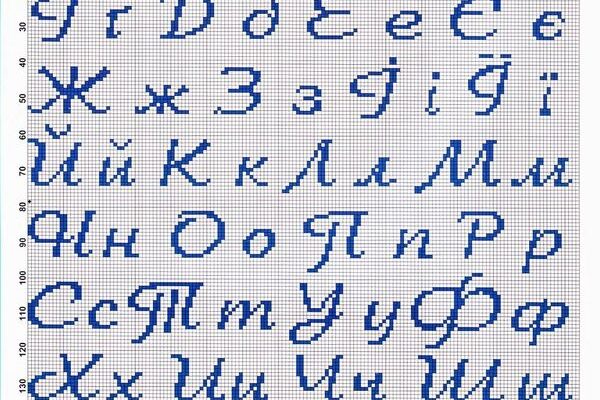 30 Г г Д д Е е Є є
40
50 Ж ж З з І і Ї ї
60
70 Й й К к Л л М м
80
90 Н н О о П п Р р
100
110 С с Т т У у Ф ф
120
130 Х х Ц ц Ч ч Ш ш